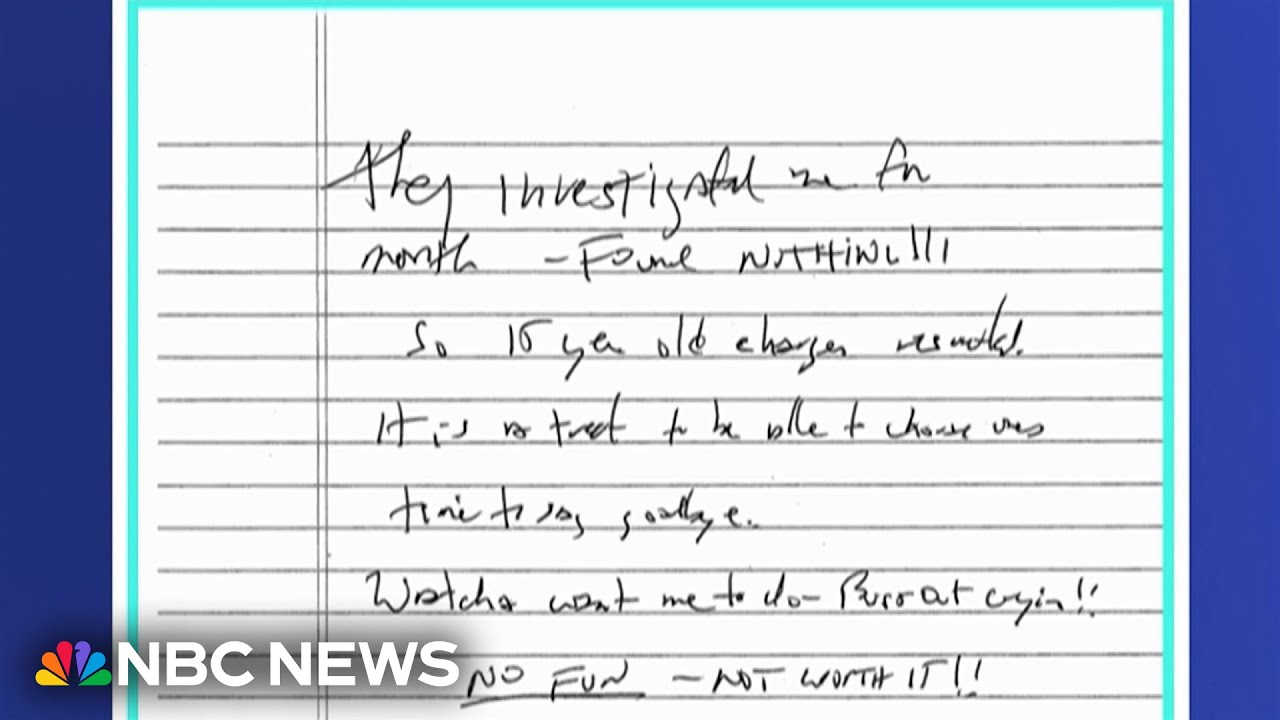 They investigated me for
month - Found NOTHING!!!
So 15 year old charges resulted.
It is a treat to be able to choose ones
time to say goodbye.
Watcha want me to do - Burst out cryin!!
NO FUN - NOT WORTH IT!!
NBC NEWS